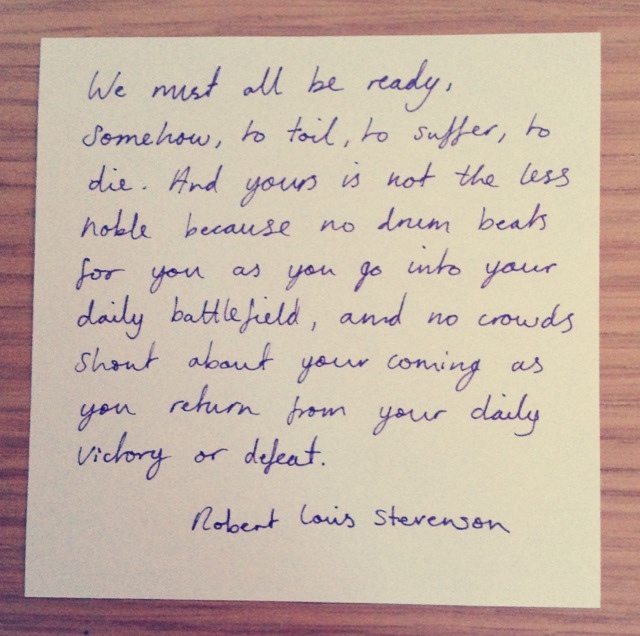 We must all be ready,
somehow, to toil, to suffer, to
die. And yours is not the less
noble because no drum beats
for you as you go into your
daily battlefield, and no crowds
shout about your coming as
you return from your daily
victory or defeat.
Robert Louis Stevenson